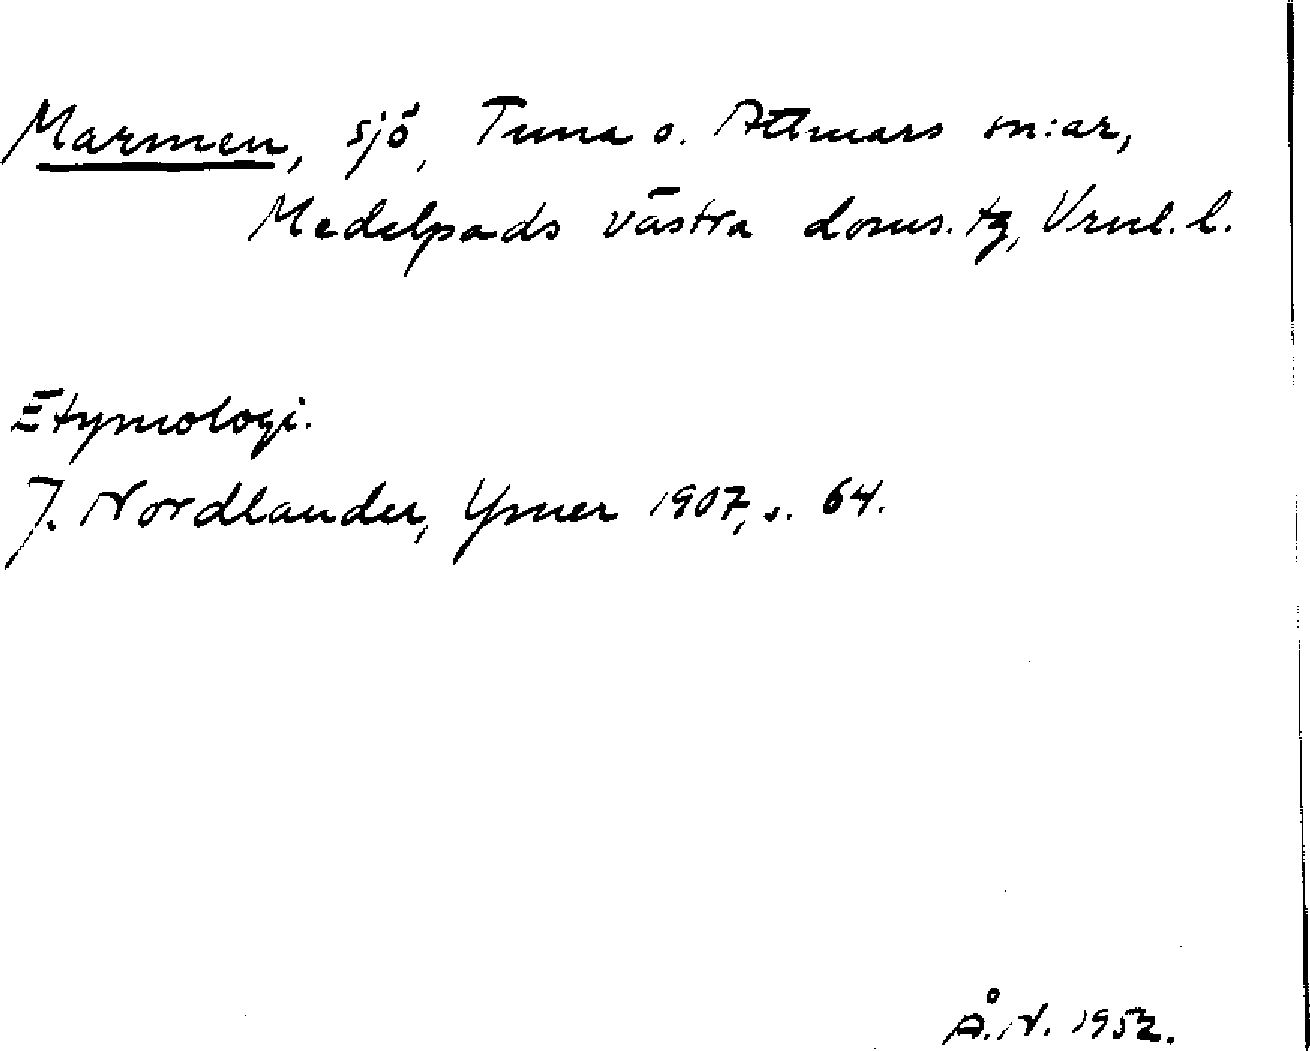 Marmen, sjö, Tuna o. Attmars sn:ar,
Medelpads västra doms. tg, Vrnl. l.
Etymologi.
J. Nordlander, Ymer 1907, s. 64.
Å.N. 1952.